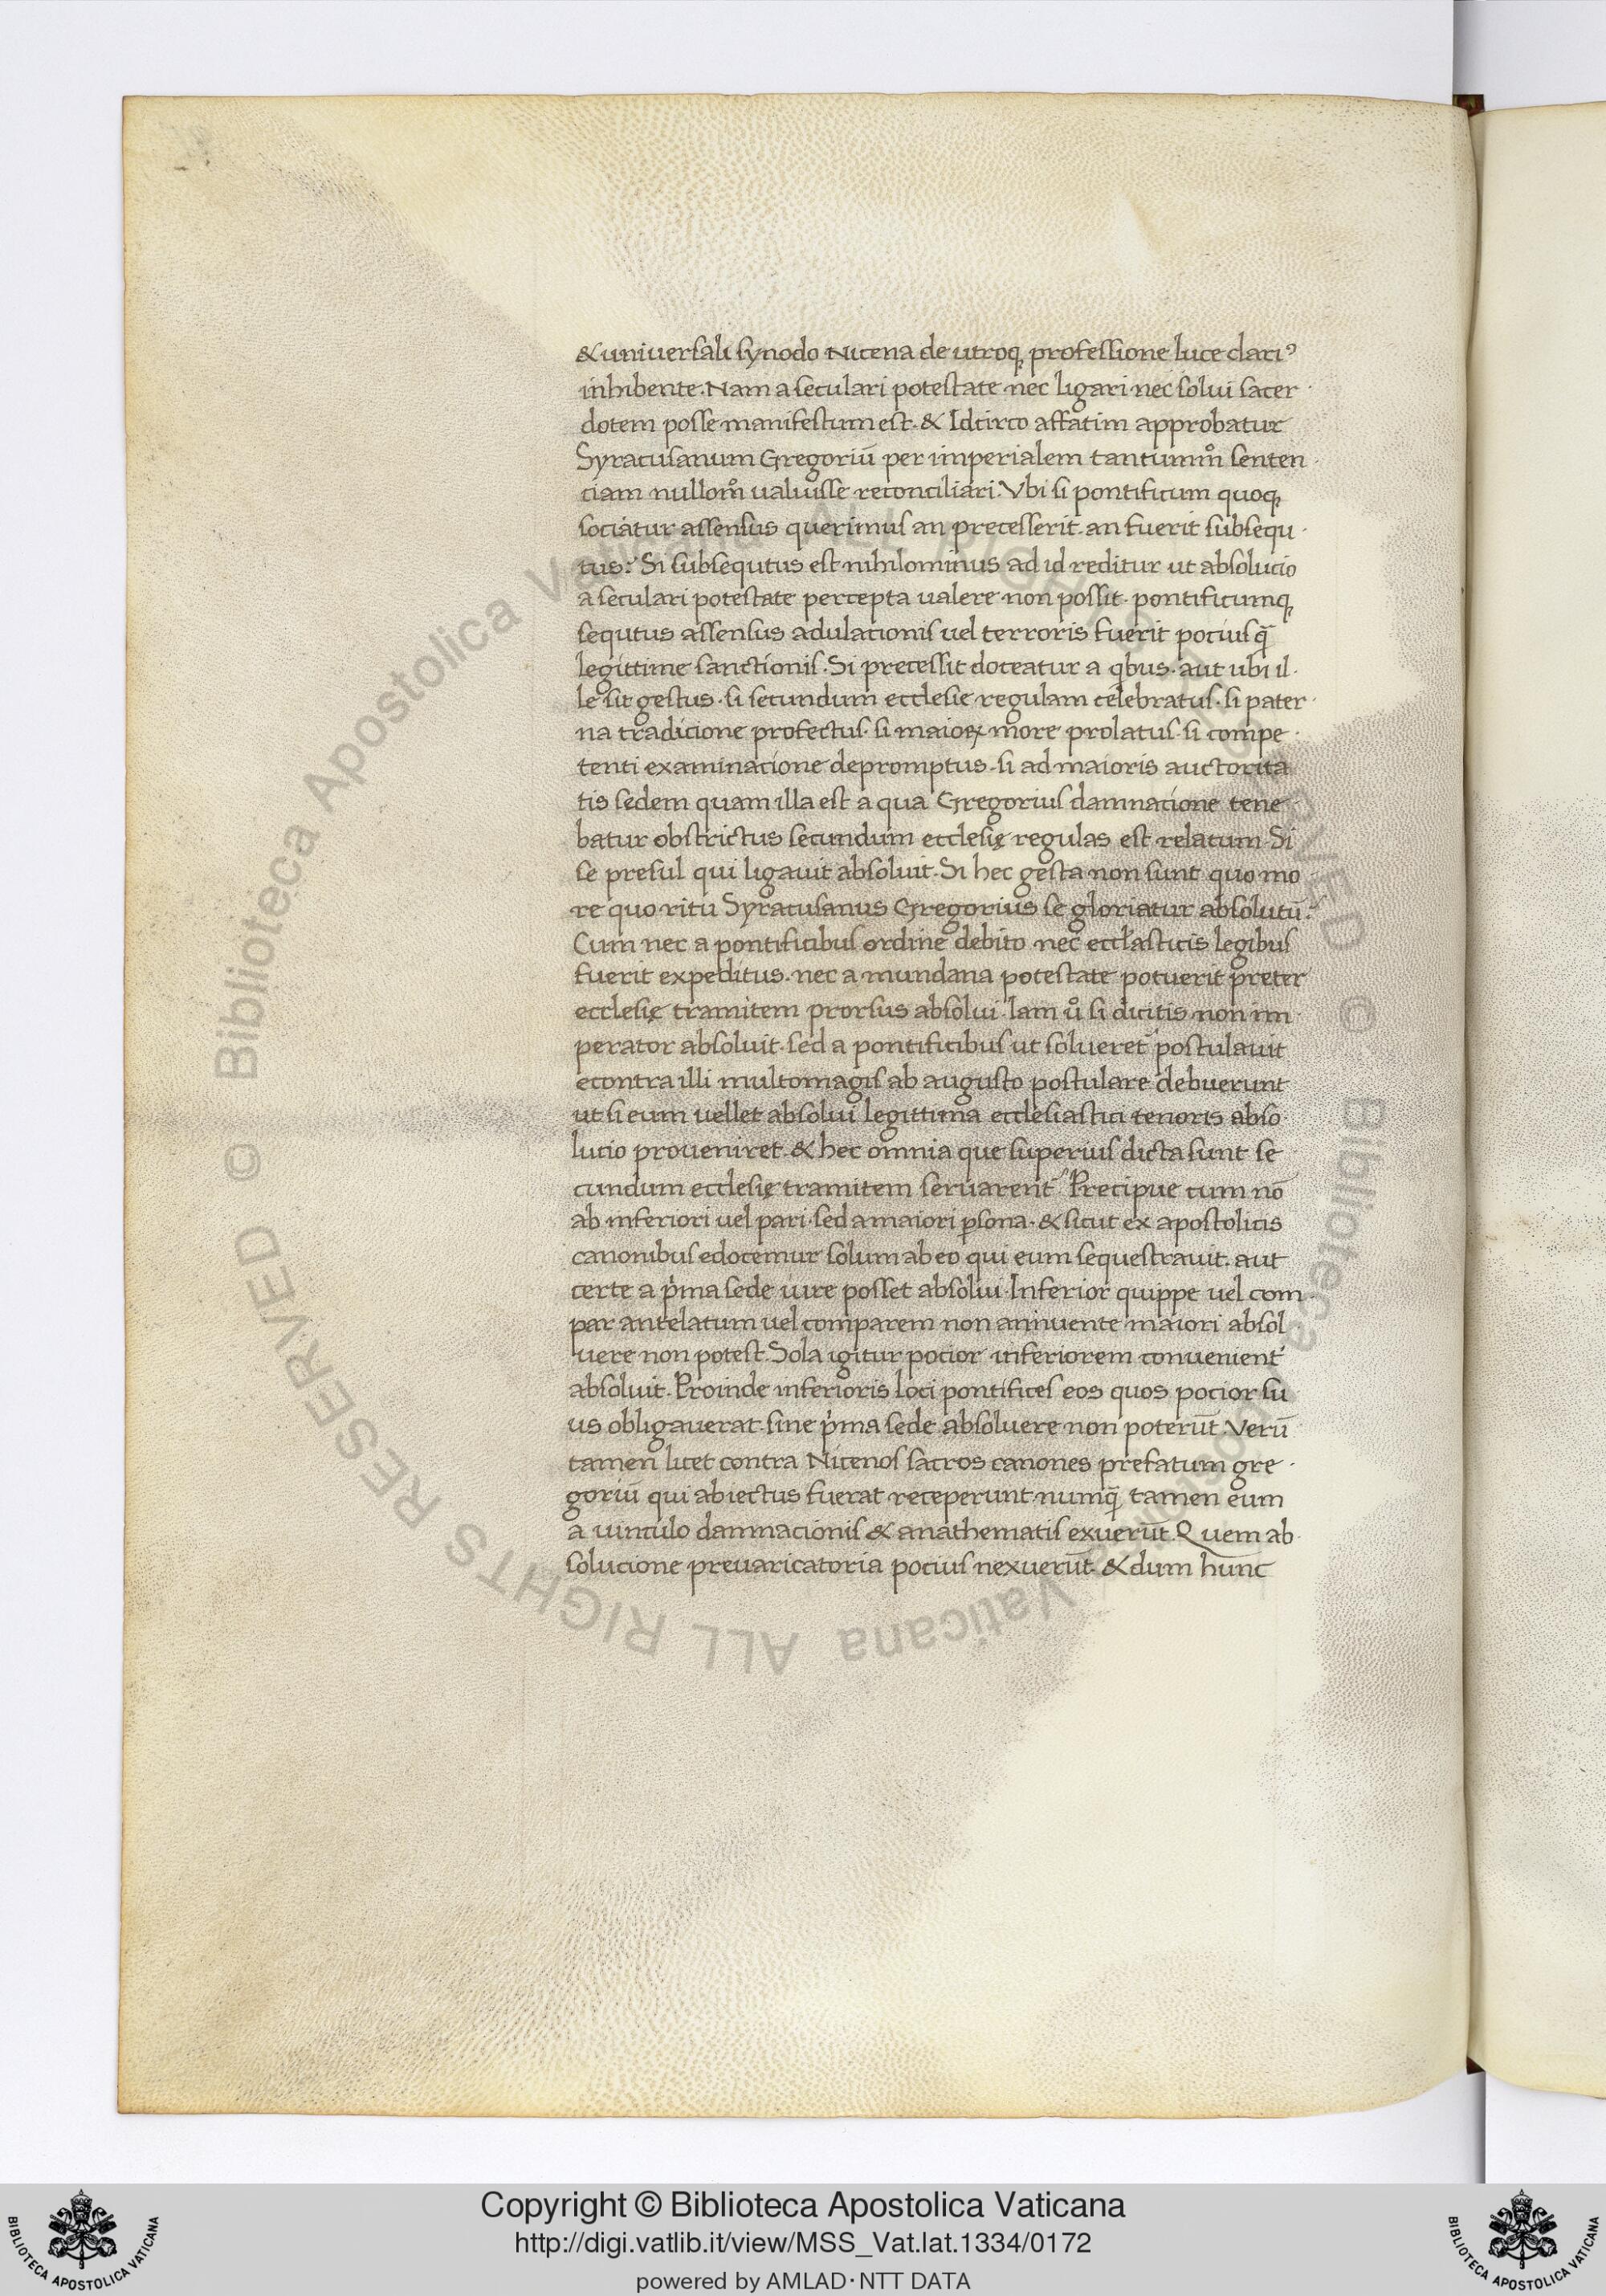 & uniuersali synodo Nicena de utroq; professione luce clariꝰ
inhibente. Nam a seculari potestate nec ligari nec solui sacer
dotem posse manifestum est. & Idcirco affatim approbatur
Syracusanum Gregoriū per imperialem tantummͦ senten
ciam nullomͦ ualuisse reconciliari. Vbi si pontificum quoq;
sociatur assensus querimus an precesserit. an fuerit subsequ
tus? Si subsequtus est nihilominus ad id reditur ut absolucio
a seculari potestate percepta ualere non possit. pontificumq;
sequtus assensus adulacionis uel terroris fuerit pocius q̄
legittime sanctionis. Si precessit doceatur a qbus. aut ubi il
le sit gestus. si secundum ecclesie regulam celebratus. si pater
na tradicione profectus. si maioꝝ more prolatus. si compe
tenti examinacione depromptus. si ad maioris auctorita
tis sedem quam illa est a qua Gregorius damnacione tene
batur obstrictus secundum ecclesię regulas est relatum. Si
se presul qui ligauit absoluit. Si hec gesta non sunt quo mo
re quo ritu Syracusanus Gregorius se gloriatur absolutū?
Cum nec a pontificibus ordine debito nec eccl̄asticis legibus
fuerit expeditus. nec a mundana potestate potuerit preter
ecclesię tramitem prorsus absolui. Iam uͦ si dicitis non im
perator absoluit. sed a pontificibus ut solueret postulauit
econtra illi multomagis ab augusto postulare debuerunt
ut si eum uellet absolui legittima ecclesiastici tenoris abso
lucio proueniret. & hec omnia que superius dicta sunt se
cundum ecclesię tramitem seruarent᷑. Precipue cum nō
ab inferiori uel pari. sed a maiori ꝑsona. & sicut ex apostolicis
canonibus edocemur solum ab eo qui eum sequestrauit. aut
certe a pͥma sede iure posset absolui. Inferior quippe uel com
par antelatum uel comparem non annuente maiori absol
uere non potest. Sola igitur pocior inferiorem conuenient᷑
absoluit. Proinde inferioris loci pontifices eos quos pocior su
us obligauerat. sine pͥma sede absoluere non poterūt. Verū
tamen licet contra Nicenos sacros canones prefatum gre
goriū qui abiectus fuerat receperunt numq̄ tamen eum
a uinculo damnacionis & anathematis exuerūt. Quem ab
solucione preuaricatoria pocius nexuerūt. & dum hunc
© Biblioteca Apostolica Vaticana ALL RIGHTS RESERVED © Biblioteca Apostolica Vaticana ALL RIGHTS RESERVED
Copyright © Biblioteca Apostolica Vaticana
http://digi.vatlib.it/view/MSS_Vat.lat.1334/0172
powered by AMLAD·NTT DATA
BIBLIOTECA APOSTOLICA VATICANA
BIBLIOTECA APOSTOLICA VATICANA